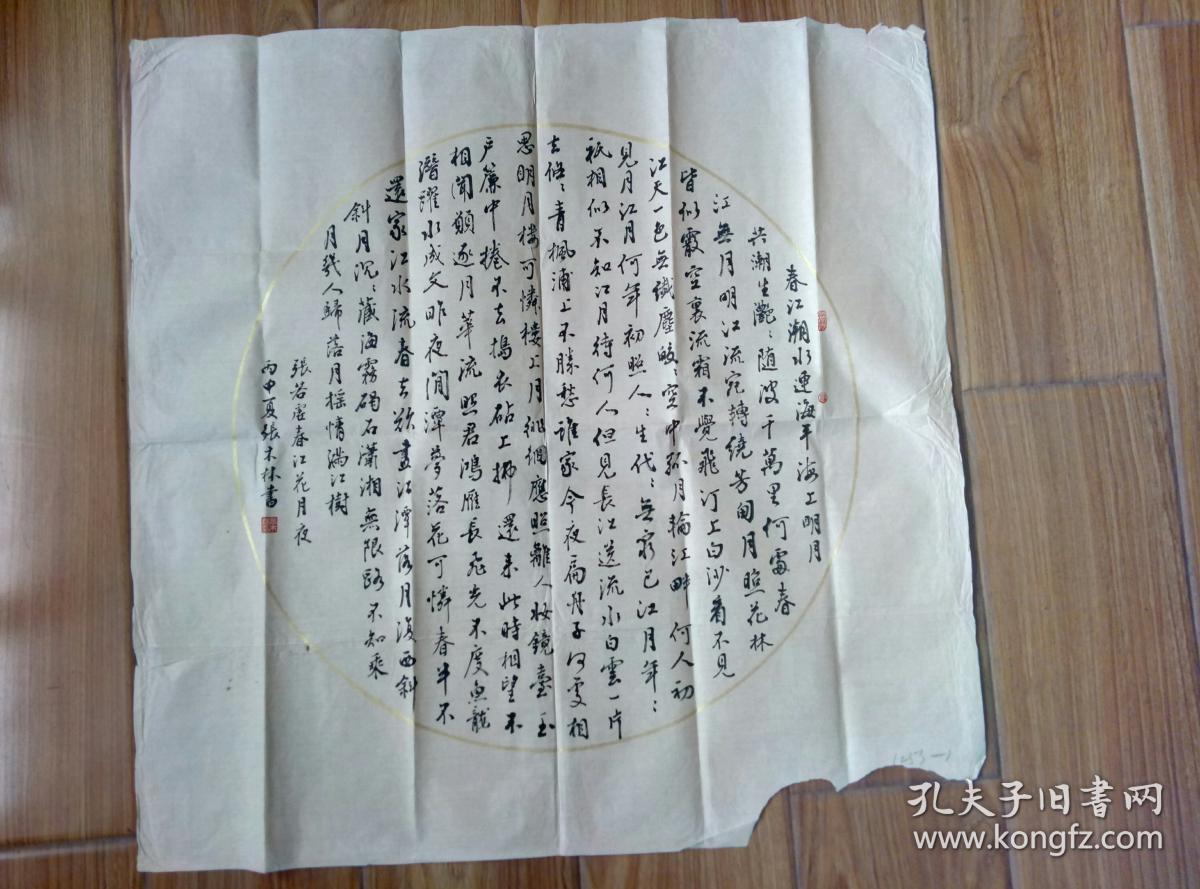 春江潮水連海平海上明月
共潮生灧〻随波千萬里何處春
江無月明江流宛轉繞芳甸月照花林
皆似霰空裏流霜不覺飛汀上白沙看不見
江天一色無纖塵皎〻空中孤月輪江畔何人初
見月江月何年初照人〻生代〻無窮已江月年〻
祇相似不知江月待何人但見長江送流水白雲一片
去悠〻青楓浦上不勝愁誰家今夜扁舟子何處相
思明月楼可憐楼上月徘徊應照離人妝鏡臺玉
户簾中捲不去搗衣砧上拂還来此時相望不
相聞願逐月華流照君鴻雁長飛光不度魚龍
潛躍水成文昨夜閒潭夢落花可憐春半不
還家江水流春去欲盡江潭落月復西斜
斜月沉〻藏海霧碣石瀟湘無限路不知乘
月幾人歸落月摇情滿江樹
張若虚春江花月夜
丙申夏張木林書
孔夫子旧書网
www.kongfz.com